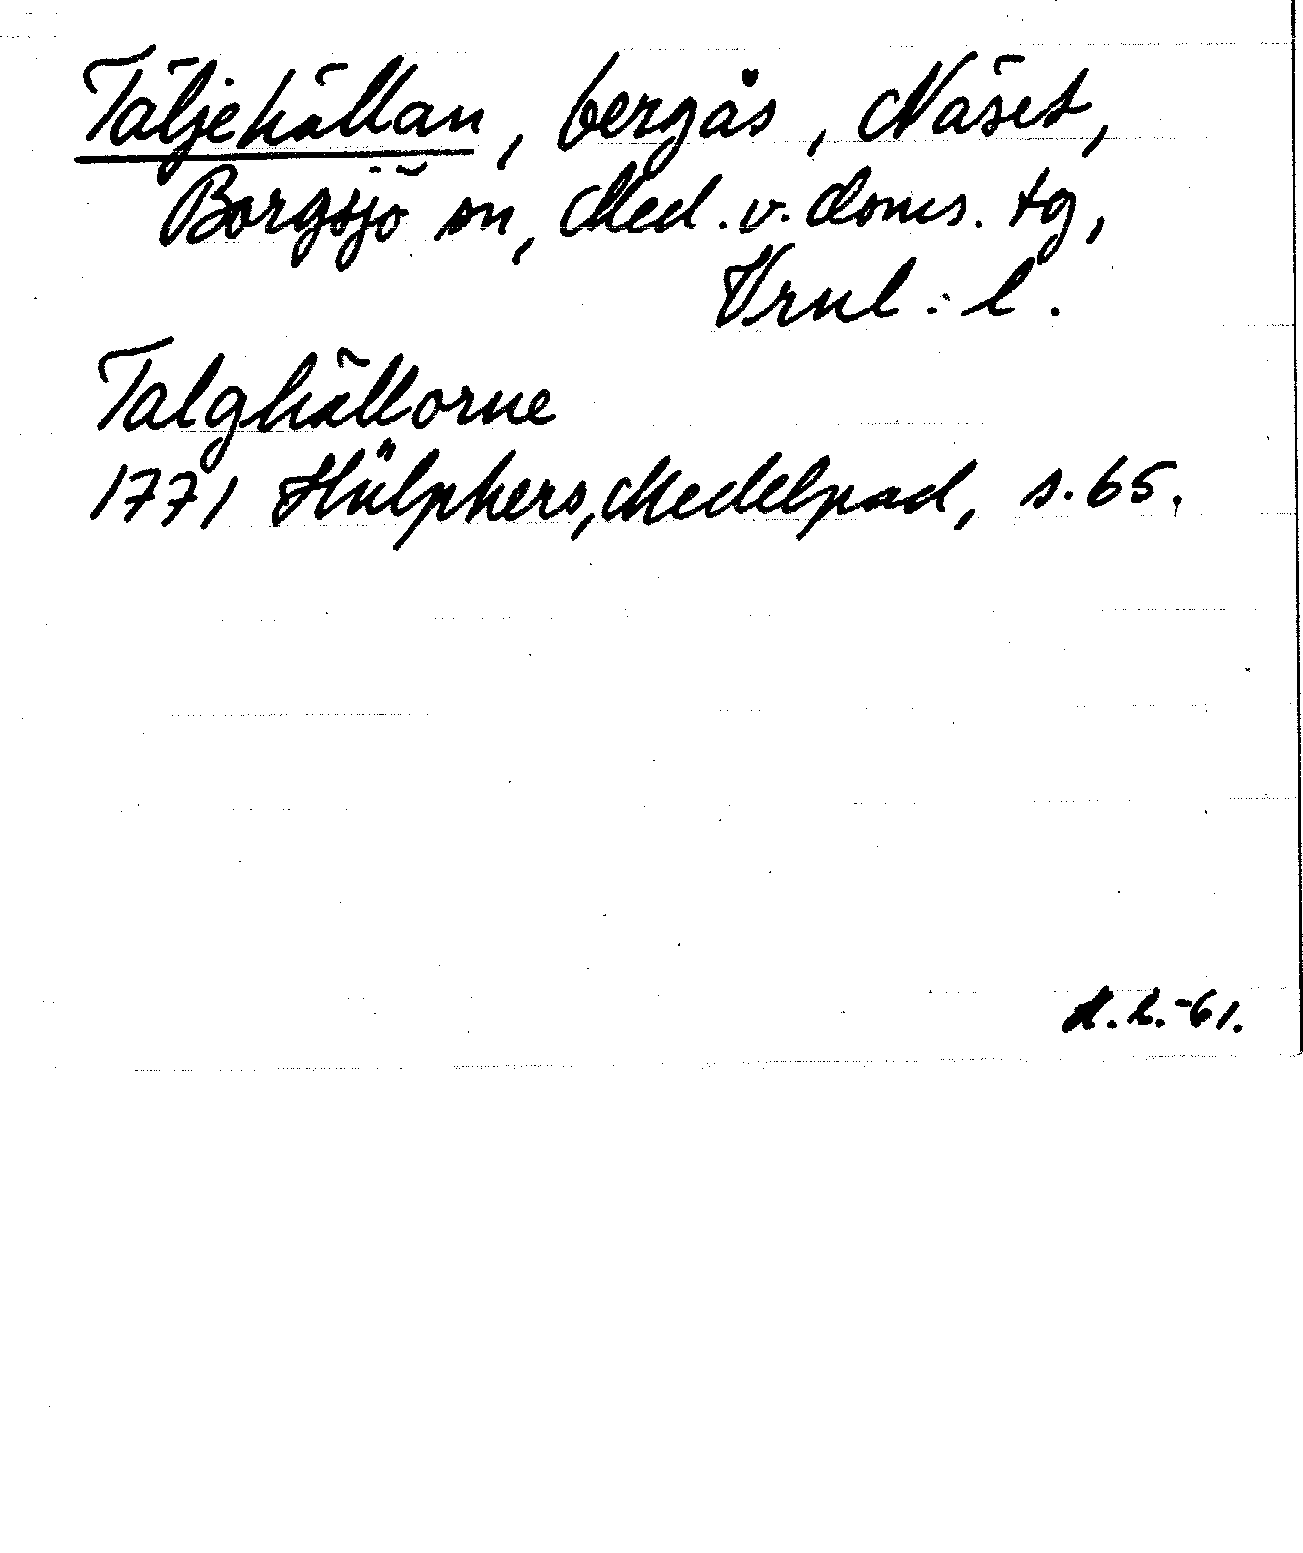 Täljehällan, bergås, Näset,
Borgsjö sn, Med. v. doms. tg,
Vrnl. l.
Talghällorne
1771 Hülphers, Medelpad, s. 65.
-61.